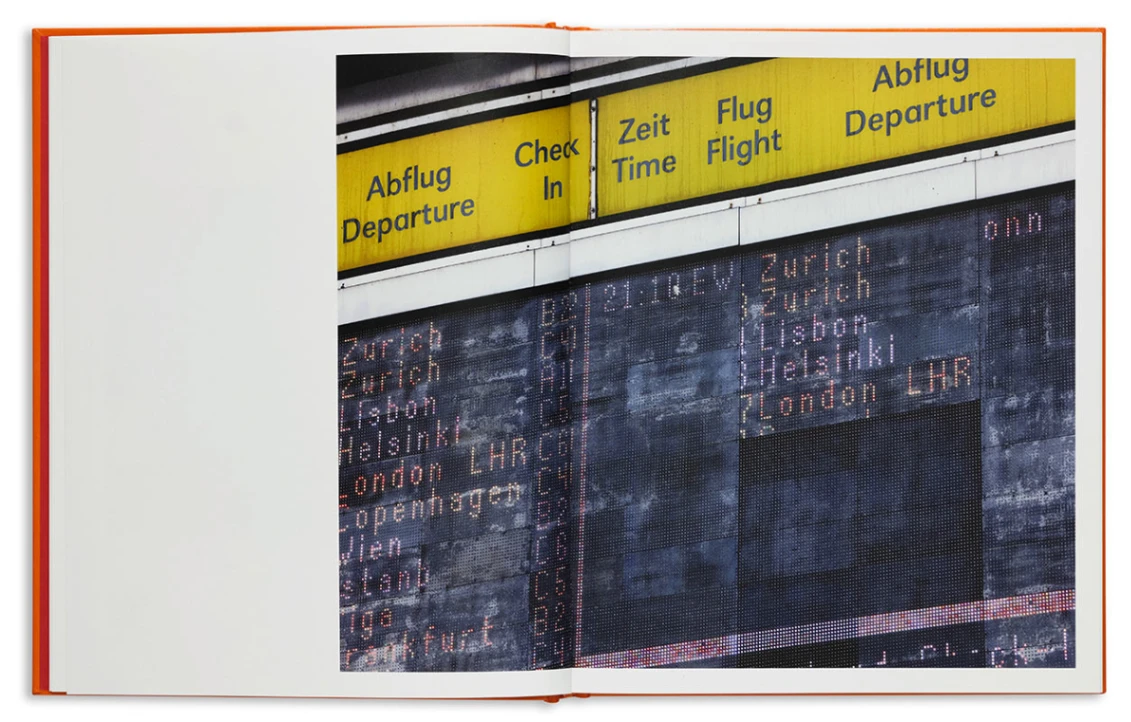 Abflug
Departure
Check
In
Zeit
Time
Flug
Flight
Abflug
Departure
Zurich B2
Zurich C4
Lisbon A1
Helsinki
London LHR C6
Copenhagen C4
Wien B2
stanb C6
iga C5
rankfurt B2
C4
21:10 EW
Zurich
Zurich
Lisbon
Helsinki
London LHR
onn